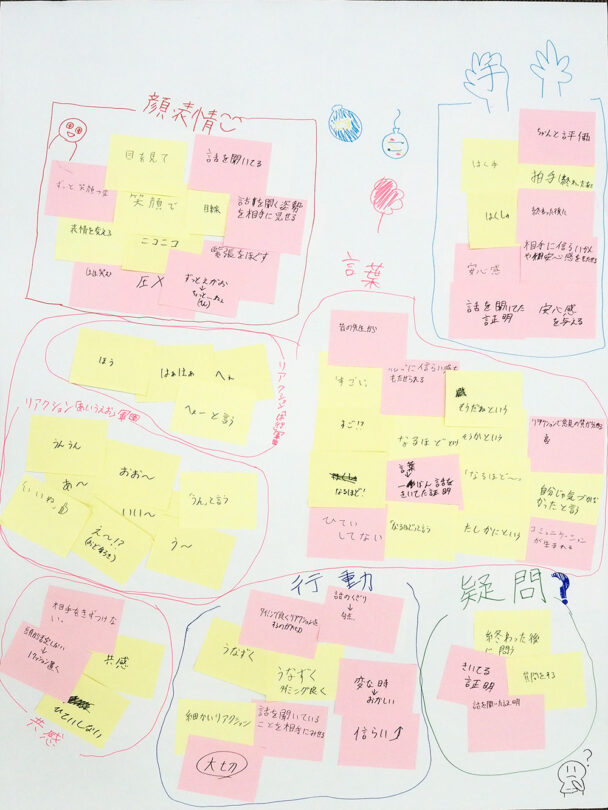 顔表情
目を見て
話を聞いてる
ずっと笑顔
笑顔で
目線
話を聞く姿勢
を相手に見せる
表情を変える
ニコニコ
緊張をほぐす
圧×
ずっとえがお
手
ちゃんと評価
はく手
拍手
はくしゅ
終わった後に
相手に信らいかん
や安心感をもたせる
安心感
話を聞いてた
証明
安心感
を与える
言葉
すごい
に信らい感を
もたせられる
そうだねという
すご!!
なるほどという
そうかという
リアクションで意見の質が分かる
なるほど!
言葉
→一ばん話を
きいてた証明
「なるほど〜」
自分じゃ気づかな
かったと言う
ひてい
してない
なるほどと言う
たしかにという
コミュニケーション
が生まれる
リアクションは行軍団
ほう
はぁはぁ
へぇ
へぇーと言う
リアクションあいうえお軍団
うんうん
おお〜
あ〜
「うん」と言う
いいね
いい〜
え〜!?
(おどろき)
う〜
共感
相手をきずつけな
い。
共感
ひていしない
行動
タイミング良くリアクションを
話のくぎり
うなずく
うなずく
タイミング良く
変な時
→おかしい
細かいリアクション
話を聞いている
ことを相手にみせる
信らい↑
大切
疑問?
終わった後
に問う
きいてる
証明
質問をする
話を聞いた証明
?